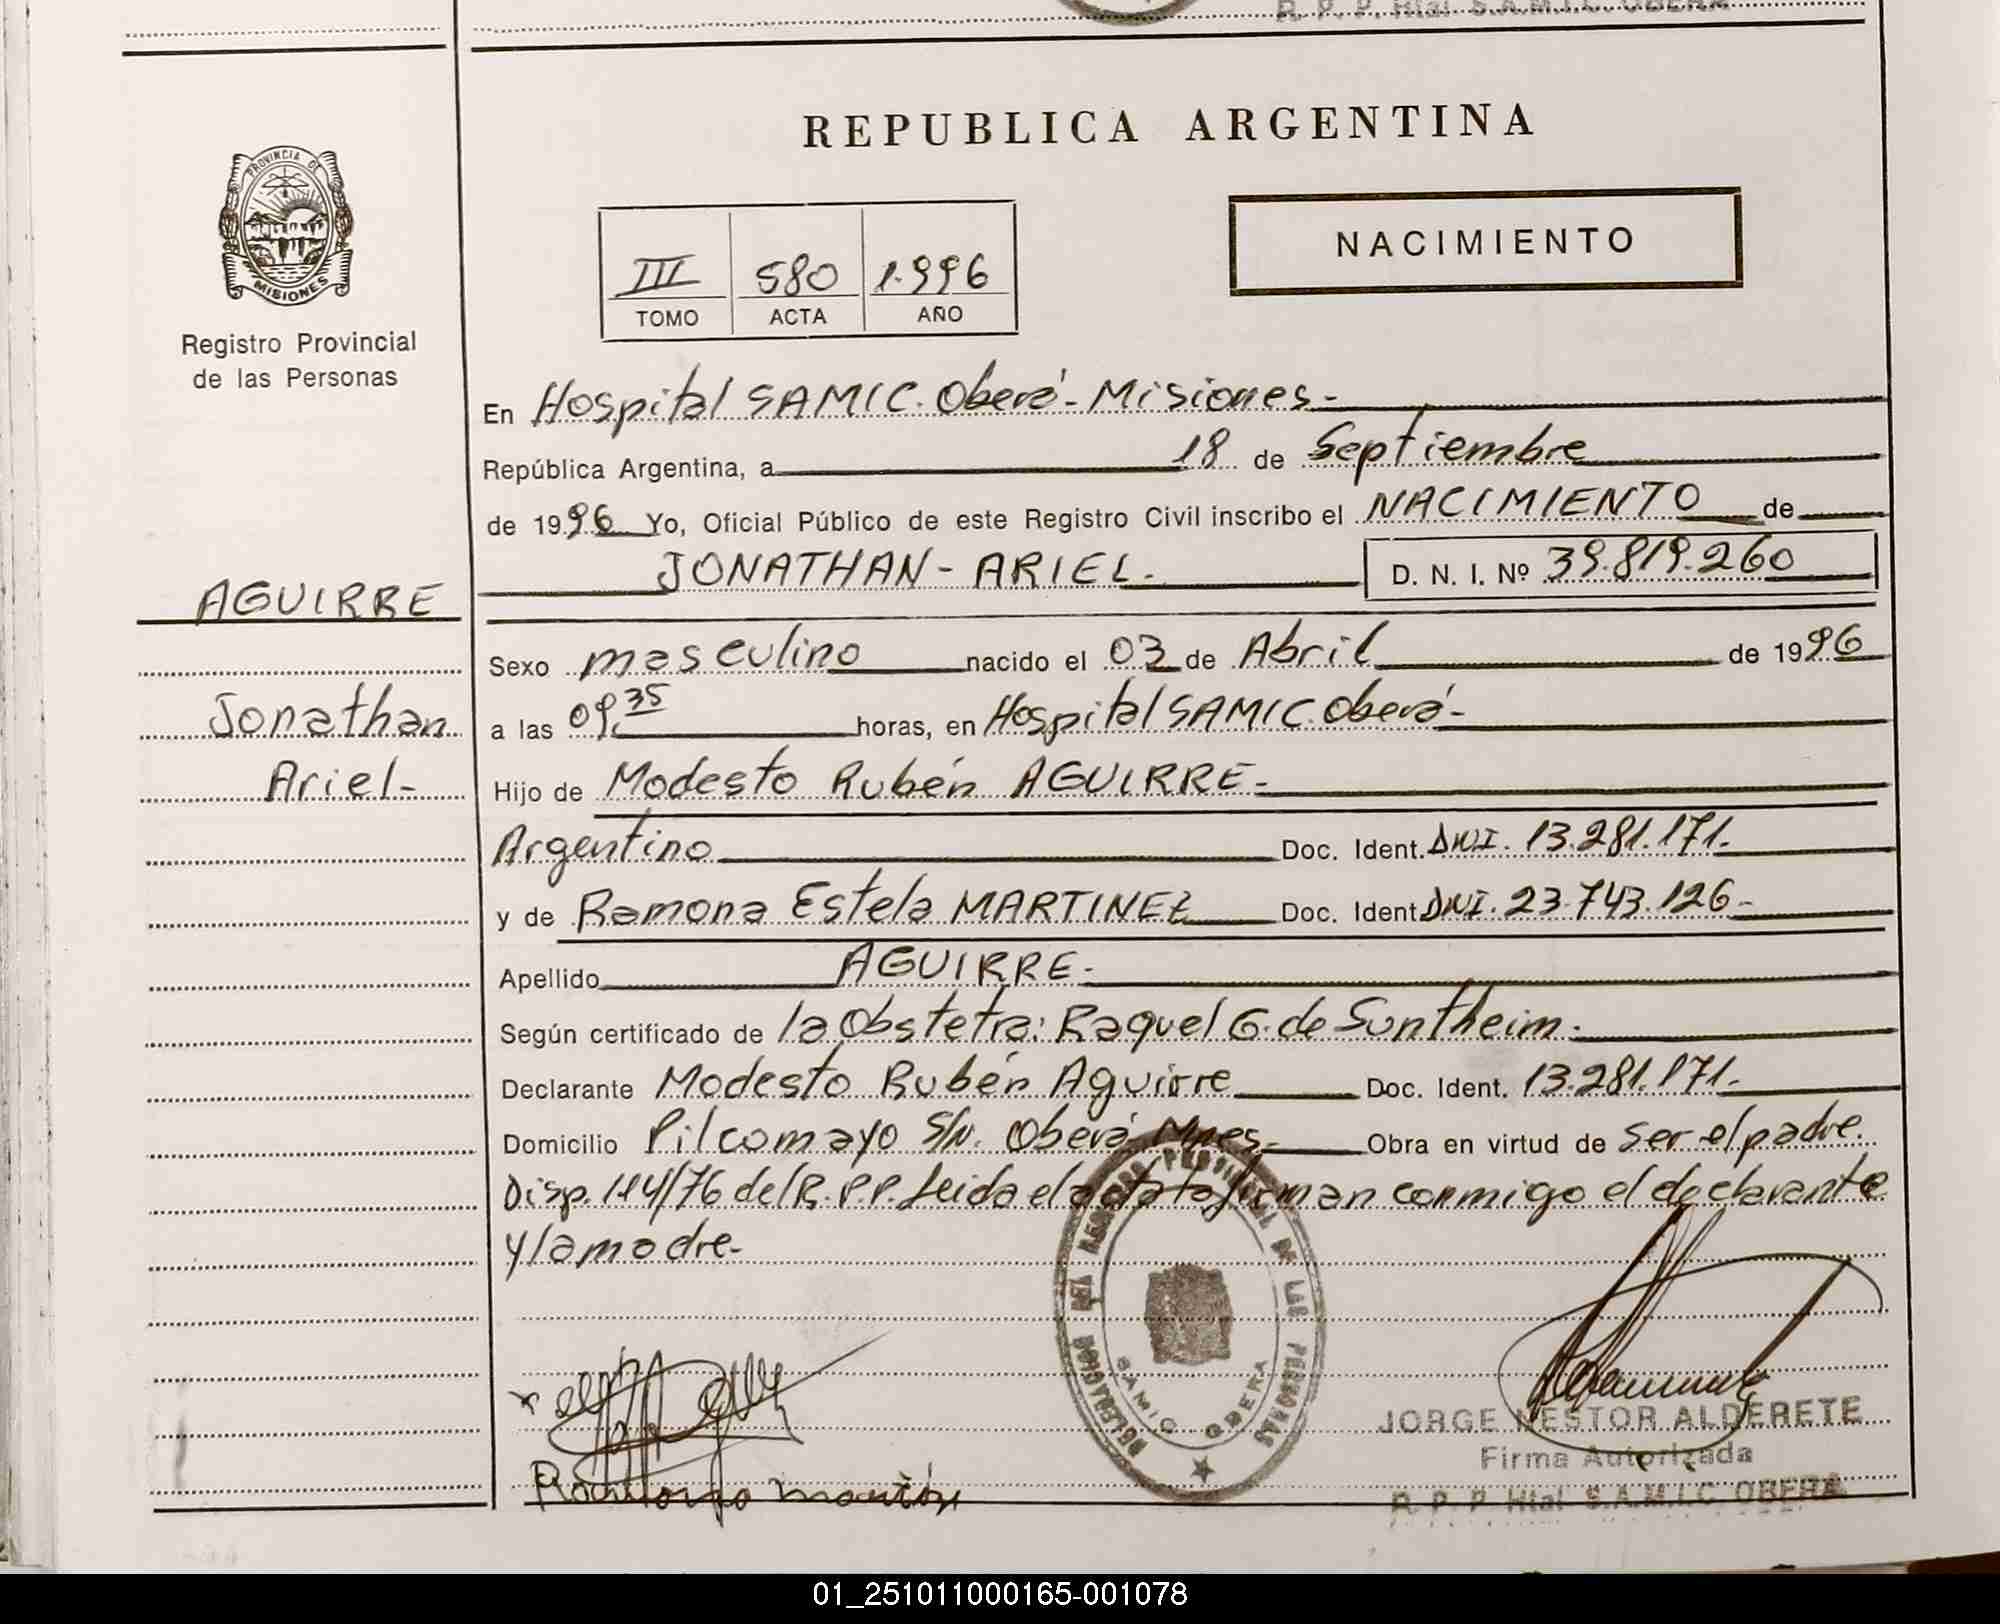 R. P. P. Htal S.A.M.I.C. OBERA
REPUBLICA ARGENTINA
PROVINCIA DE
MISIONES
Registro Provincial
de las Personas
III 580 1.996
TOMO ACTA AÑO
NACIMIENTO
En Hospital SAMIC. Oberá - Misiones -
República Argentina, a 18 de Septiembre
de 1996 Yo, Oficial Público de este Registro Civil inscribo el NACIMIENTO de
JONATHAN - ARIEL - D. N. I. Nº 39.819.260
AGUIRRE
Sexo masculino nacido el 03 de Abril de 1996
Jonathan
a las 09.35 horas, en Hospital SAMIC. Oberá -
Ariel -
Hijo de Modesto Rubén AGUIRRE -
Argentino Doc. Ident. DNI. 13.281.171.
y de Ramona Estela MARTINEZ Doc. Ident. DNI. 23.743.126 -
Apellido AGUIRRE -
Según certificado de la Obstetra: Raquel G. de Suntheim.
Declarante Modesto Rubén Aguirre Doc. Ident. 13.281.171 -
Domicilio Pilcomayo S/N. Oberá Mnes - Obra en virtud de ser el padre.
Disp. 114/76 del R.P.P. Leida el acta la firman conmigo el declarante
y la madre -
DELEGACION DEL REGISTRO PROVINCIAL DE LAS PERSONAS
SAMIC OBERA
JORGE NESTOR ALDERETE
Firma Autorizada
R. P. P. Htal S.A.M.I.C. OBERA
01_251011000165-001078